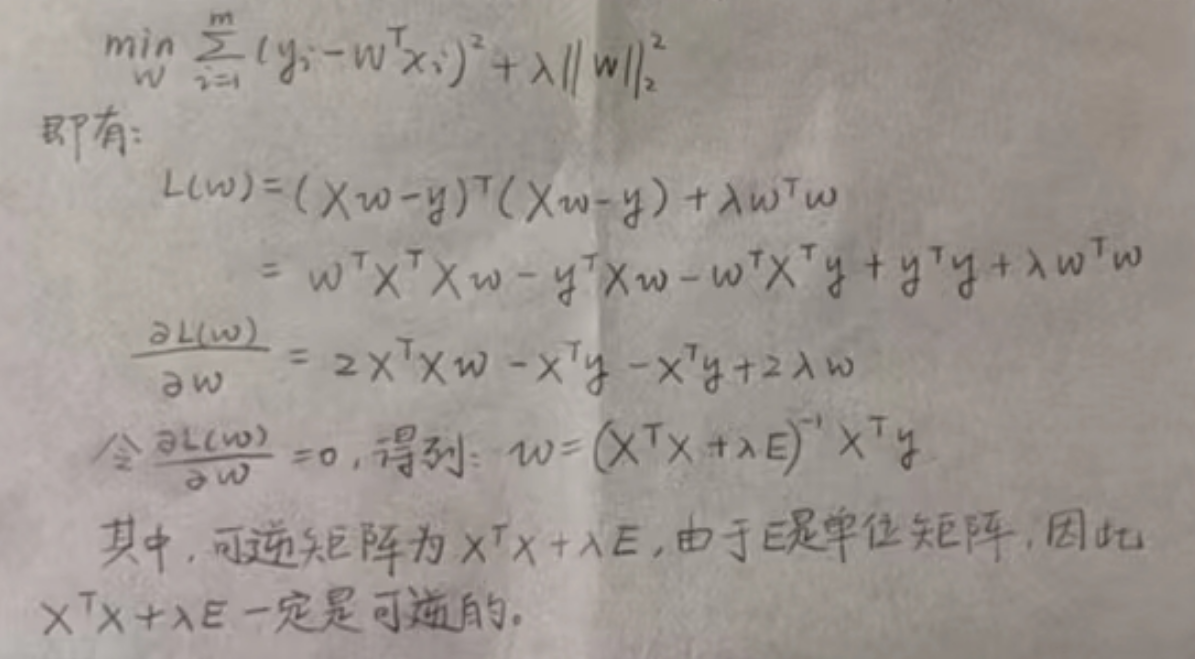 min_w Σ_{i=1}^{m} (y_i - w^T x_i)^2 + λ||w||_2^2
即有:
L(w) = (Xw-y)^T (Xw-y) + λw^T w
= w^T X^T X w - y^T X w - w^T X^T y + y^T y + λ w^T w
∂L(w)/∂w = 2X^T X w - X^T y - X^T y + 2λw
令 ∂L(w)/∂w = 0, 得到: w = (X^T X + λE)^{-1} X^T y
其中, 可逆矩阵为 X^T X + λE, 由于E是单位矩阵, 因此
X^T X + λE 一定是可逆的。